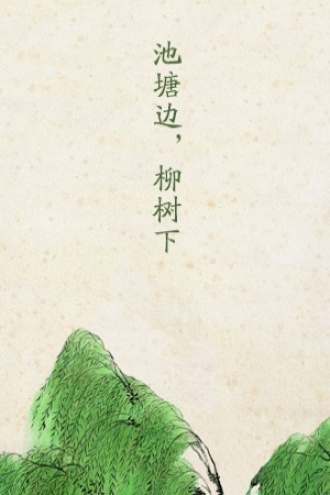 池塘边，柳树下